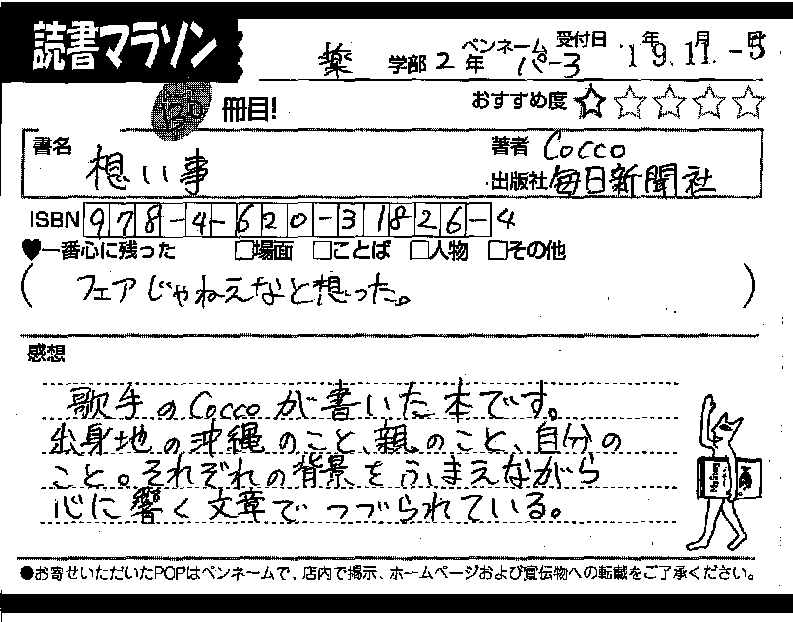 読書マラソン
薬 学部 2 年 ペンネーム パー3 受付日 19年11月-5日
130 冊目! おすすめ度 ☆☆☆☆☆
書名 想い事 著者 Cocco
出版社 毎日新聞社
ISBN 978-4-620-31826-4
♥一番心に残った □場面 □ことば □人物 □その他
(フェアじゃねえなと想った。)
感想
歌手のCoccoが書いた本です。
出身地の沖縄のこと、親のこと、自分の
こと。それぞれの背景をふまえながら
心に響く文章でつづられている。
●お寄せいただいたPOPはペンネームで、店内で掲示、ホームページおよび宣伝物への転載をご了承ください。